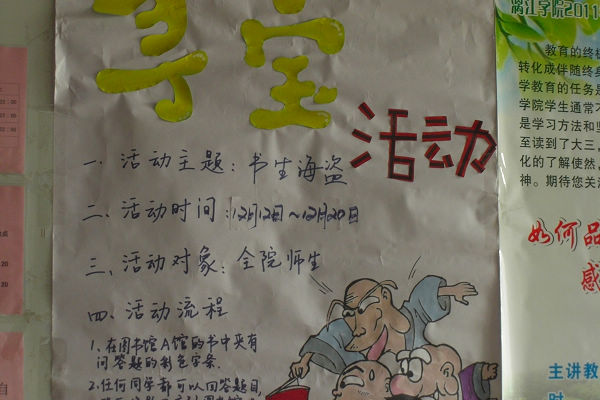 寻宝
活动
一、活动主题：书生海盗
二、活动时间：12月12日～12月20日
三、活动对象：全院师生
四、活动流程
1、在图书馆A馆的书中夹有
问答题的彩色字条.
2.任何同学都可以回答题目,
漓江学院2011
教育的终极
转化成伴随终身
学教育的任务是
学院学生通常不
是学习方法和坚
至读到了大三，
化的了解使然，
神。期待您关注
如何品
感
主讲教
时